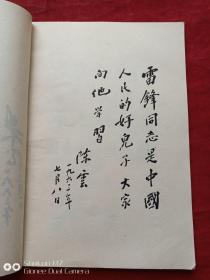 雷鋒同志是中國
人民的好兒子大家
向他學習
陳雲
一九六三年
七月八日